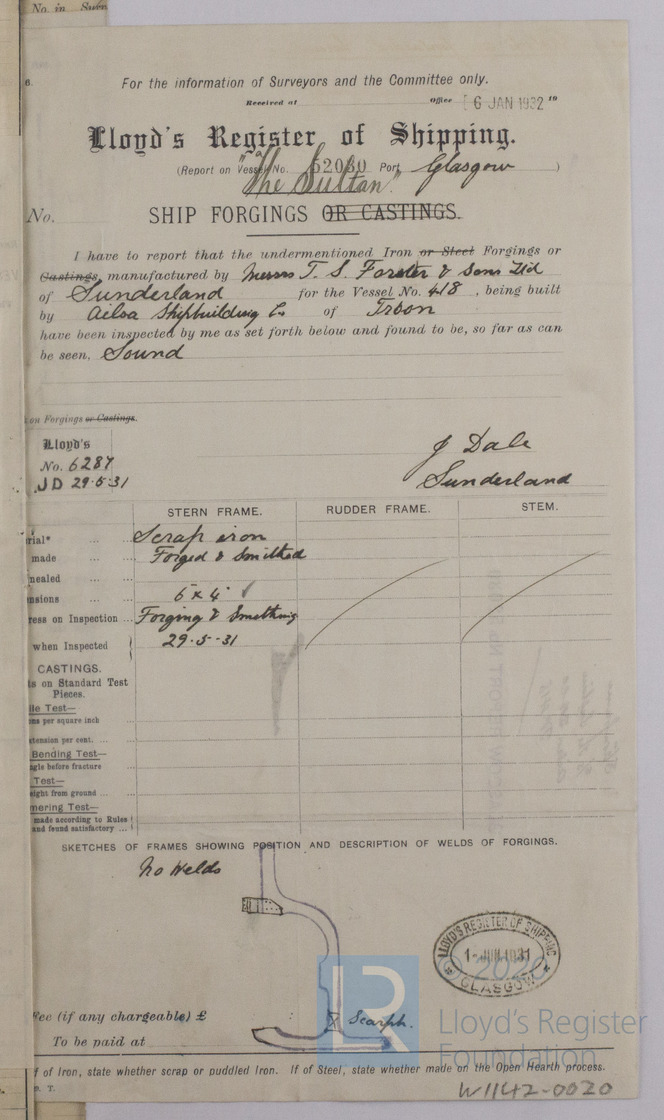 No. in Surv
6.
For the information of Surveyors and the Committee only.
Received at Office 6 JAN 1932 19
Lloyd's Register of Shipping.
(Report on Vessel No. 52080 Port Glasgow )
"The Sultan"
No. SHIP FORGINGS OR CASTINGS.
I have to report that the undermentioned Iron or Steel Forgings or
Castings, manufactured by Messrs T. S. Forster & Sons Ltd
of Sunderland for the Vessel No. 418, being built
by Ailsa Shipbuilding Co of Troon
have been inspected by me as set forth below and found to be, so far as can
be seen, Sound
on Forgings or Castings.
Lloyd's
No. 6287
JD 29.5.31
J Dale
Sunderland
STERN FRAME. RUDDER FRAME. STEM.
rial* ... ... Scrap iron
made ... ... Forged & Smithed
nealed ... ...
nsions ... ... 6 x 4
ress on Inspection ... Forging & Smithing
when Inspected 29.5.31
CASTINGS.
ts on Standard Test
Pieces.
ile Test—
ons per square inch
xtension per cent. ...
Bending Test—
ngle before fracture
Test—
eight from ground ...
mering Test—
made according to Rules
and found satisfactory ...
SKETCHES OF FRAMES SHOWING POSITION AND DESCRIPTION OF WELDS OF FORGINGS.
No Welds
LLOYD'S REGISTER OF SHIPPING
1-JUN 1931
GLASGOW
© 2020
LR
Lloyd's Register
Foundation
Scarph.
Fee (if any chargeable) £
To be paid at
If of Iron, state whether scrap or puddled Iron. If of Steel, state whether made on the Open Hearth process.
T.
W1142-0020